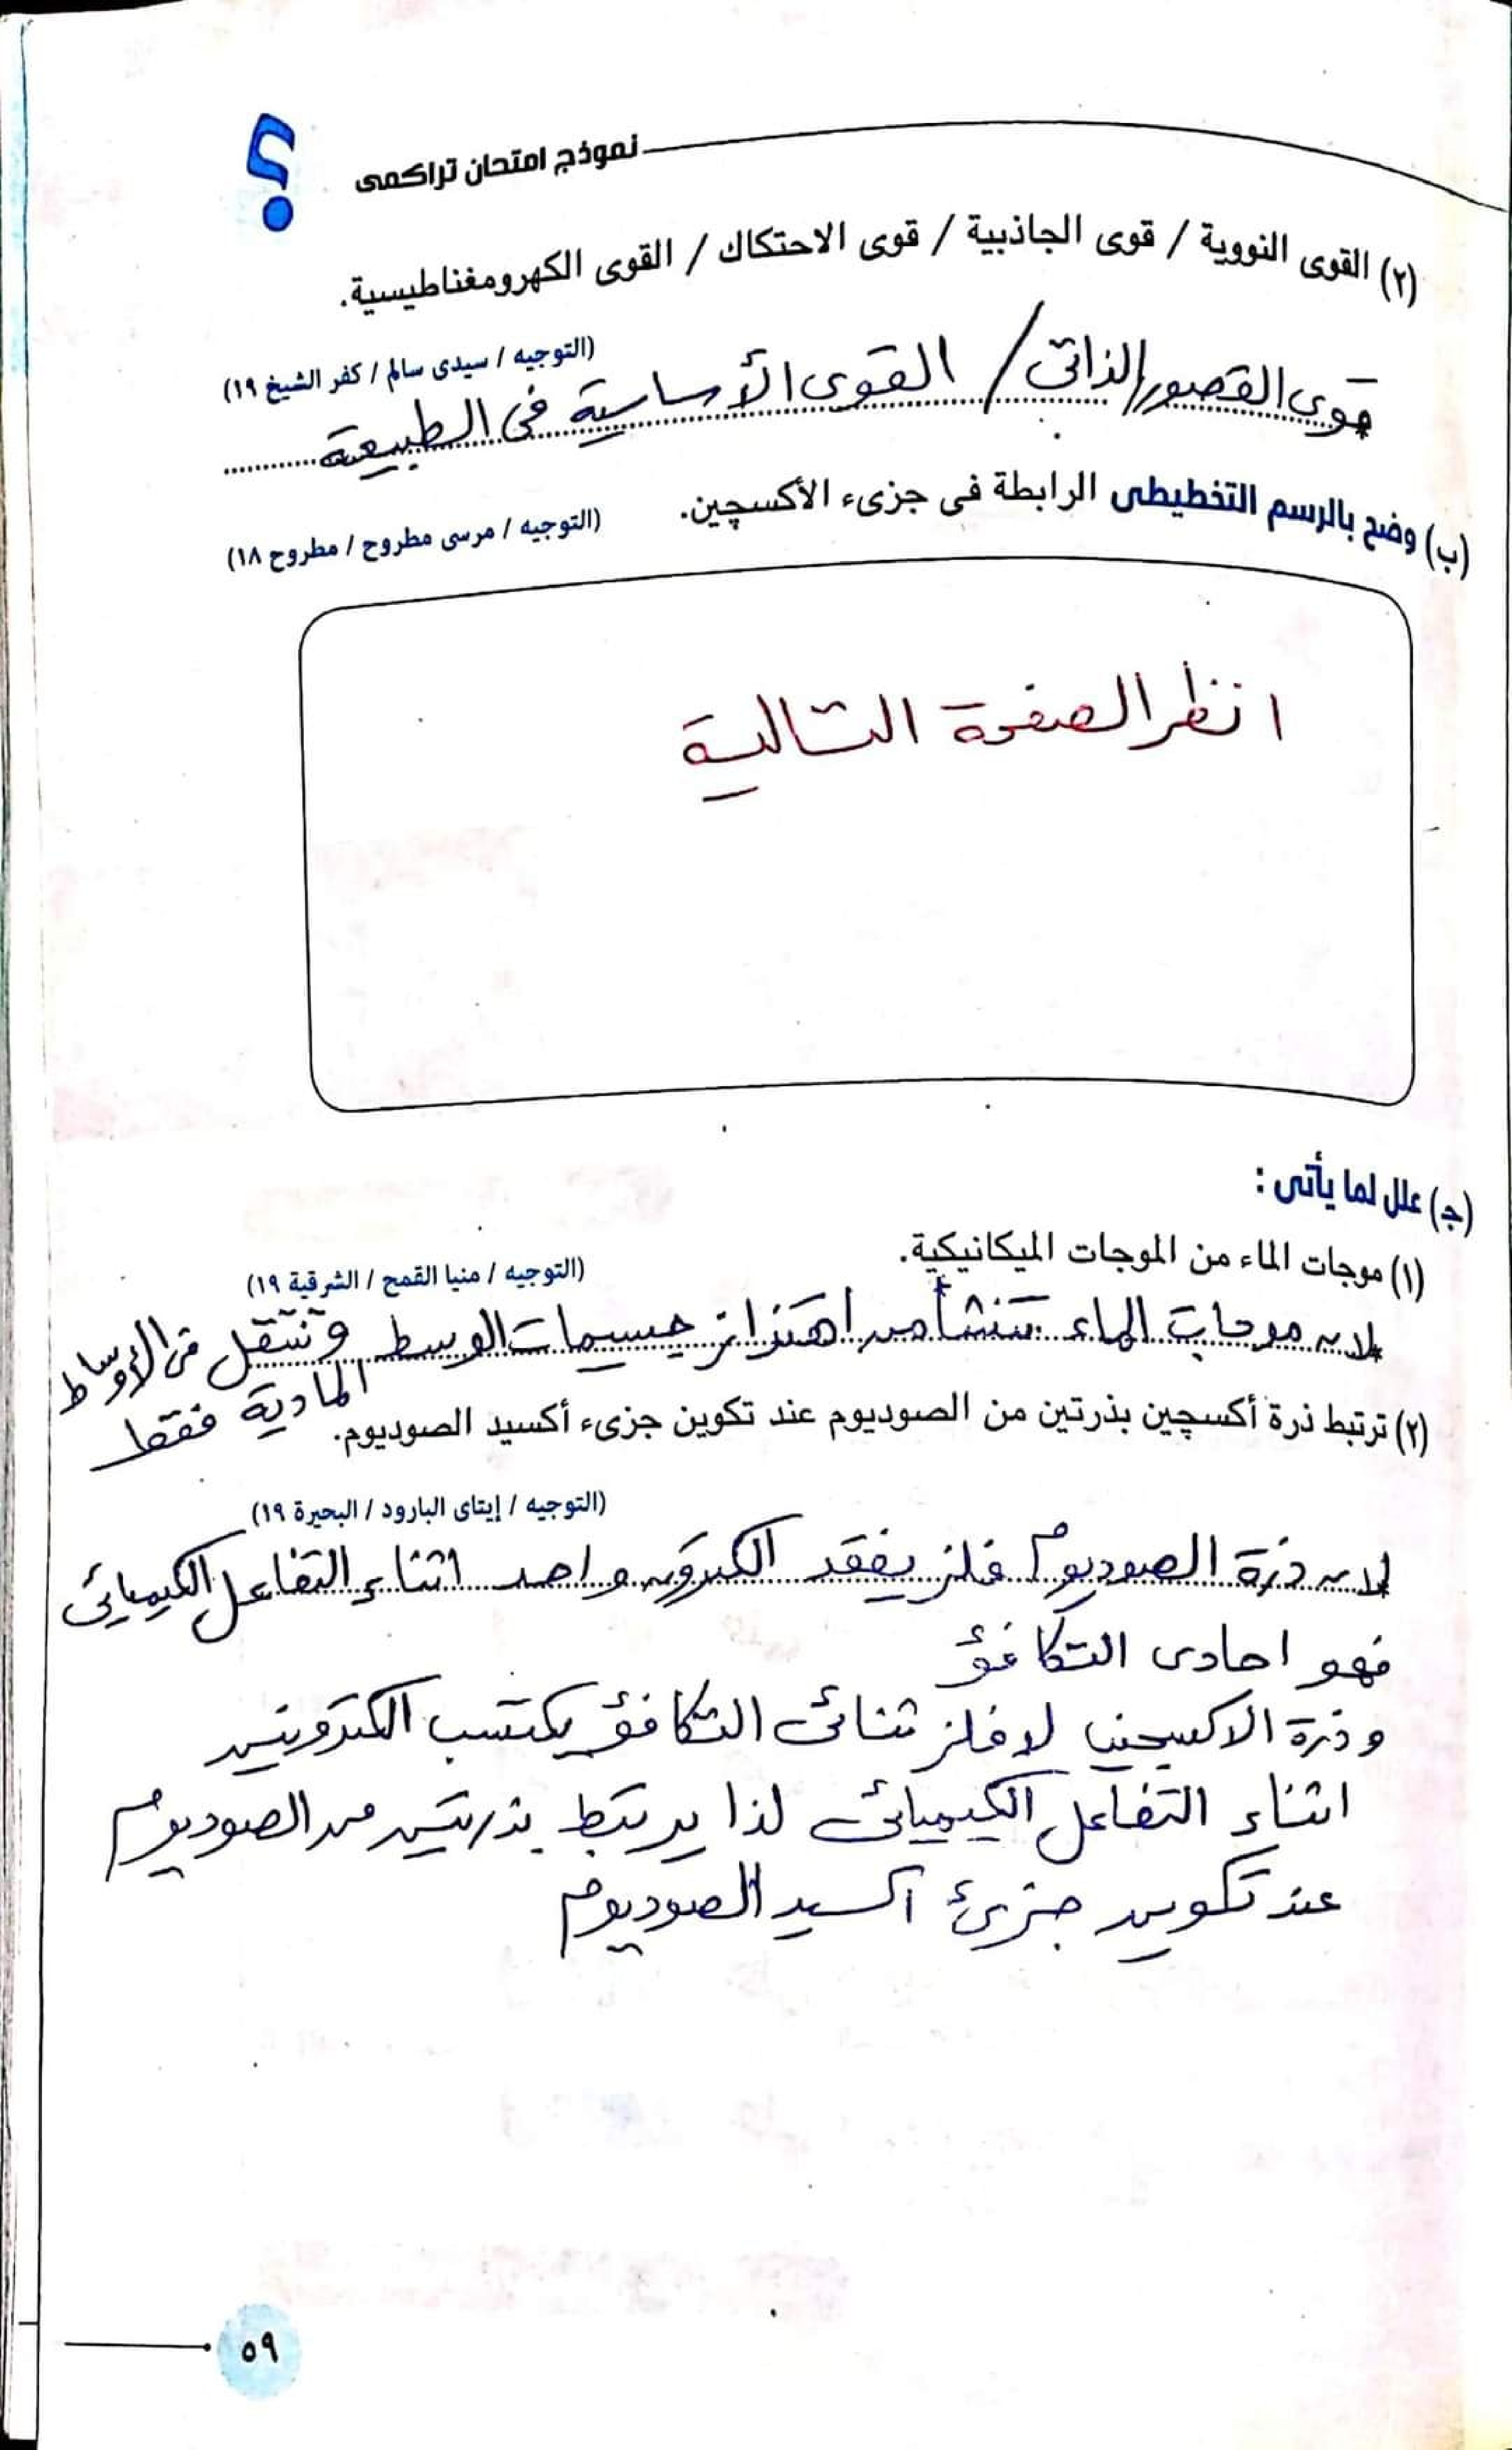 نموذج امتحان تراكمى
؟
(٢) القوى النووية / قوى الجاذبية / قوى الاحتكاك / القوى الكهرومغناطيسية.
(التوجيه / سيدى سالم / كفر الشيخ ١٩)
قوى القصور الذاتى / القوى الأساسية فى الطبيعة
(ب) وضح بالرسم التخطيطى الرابطة فى جزىء الأكسچين.
(التوجيه / مرسى مطروح / مطروح ١٨)
انظر الصفحة التالية
(جـ) علل لما يأتى :
(١) موجات الماء من الموجات الميكانيكية.
(التوجيه / منيا القمح / الشرقية ١٩)
لان موجات الماء تنشأ من اهتزاز جسيمات الوسط وتنتقل فى الأوساط
المادية فقط
(٢) ترتبط ذرة أكسچين بذرتين من الصوديوم عند تكوين جزىء أكسيد الصوديوم.
(التوجيه / إيتاى البارود / البحيرة ١٩)
لان ذرة الصوديوم فلز يفقد الكترون واحد اثناء التفاعل الكيميائى
فهو احادى التكافؤ
وذرة الاكسجين لافلز ثنائى التكافؤ يكتسب الكترونين
اثناء التفاعل الكيميائى لذا يرتبط بذرتين من الصوديوم
عند تكوين جزئ اكسيد الصوديوم
٥٩